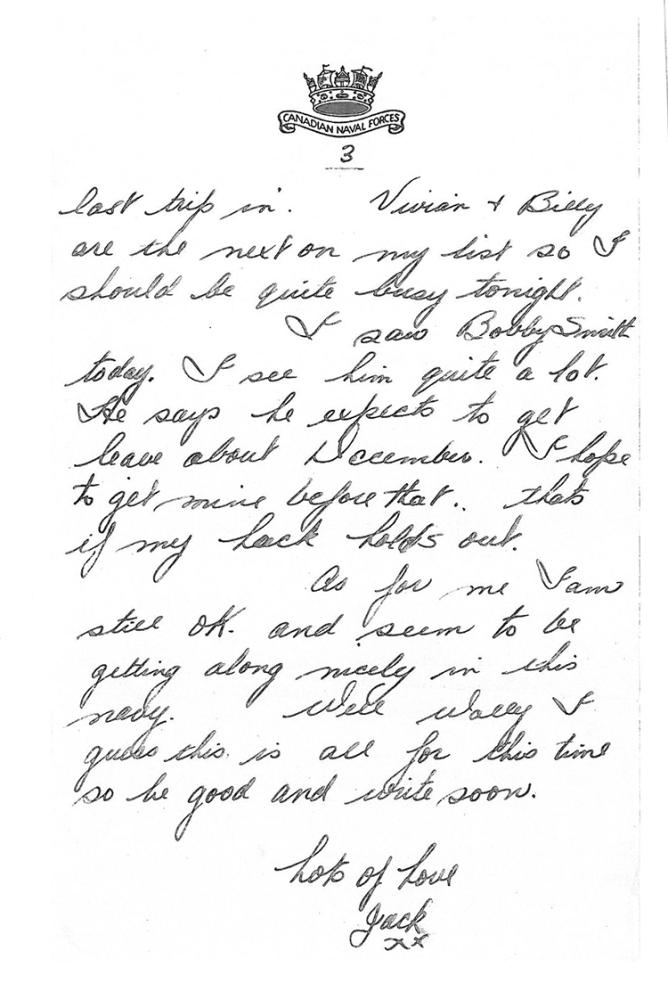 CANADIAN NAVAL FORCES
3
last trip in. Vivian + Billy
are the next on my list so I
should be quite busy tonight.
I saw Bobby Smith
today. I see him quite a lot.
He says he expects to get
leave about December. I hope
to get mine before that.. thats
if my luck holds out.
As for me I am
still OK. and seem to be
getting along nicely in this
navy. Well Wally I
guess this is all for this time
so be good and write soon.
Lots of Love
Jack
xx